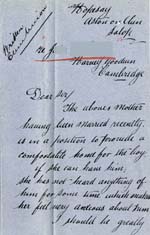 Hopesay
Aston on Clun
Salop
re J.
Harvey Goodwin
Cambridge
Dear Sir
The above's mother
having been married recently,
is in a position to provide a
comfortable home for the boy
if she can have him,
she has not heard anything of
him for some time which makes
her feel very anxious about him
I should be greatly